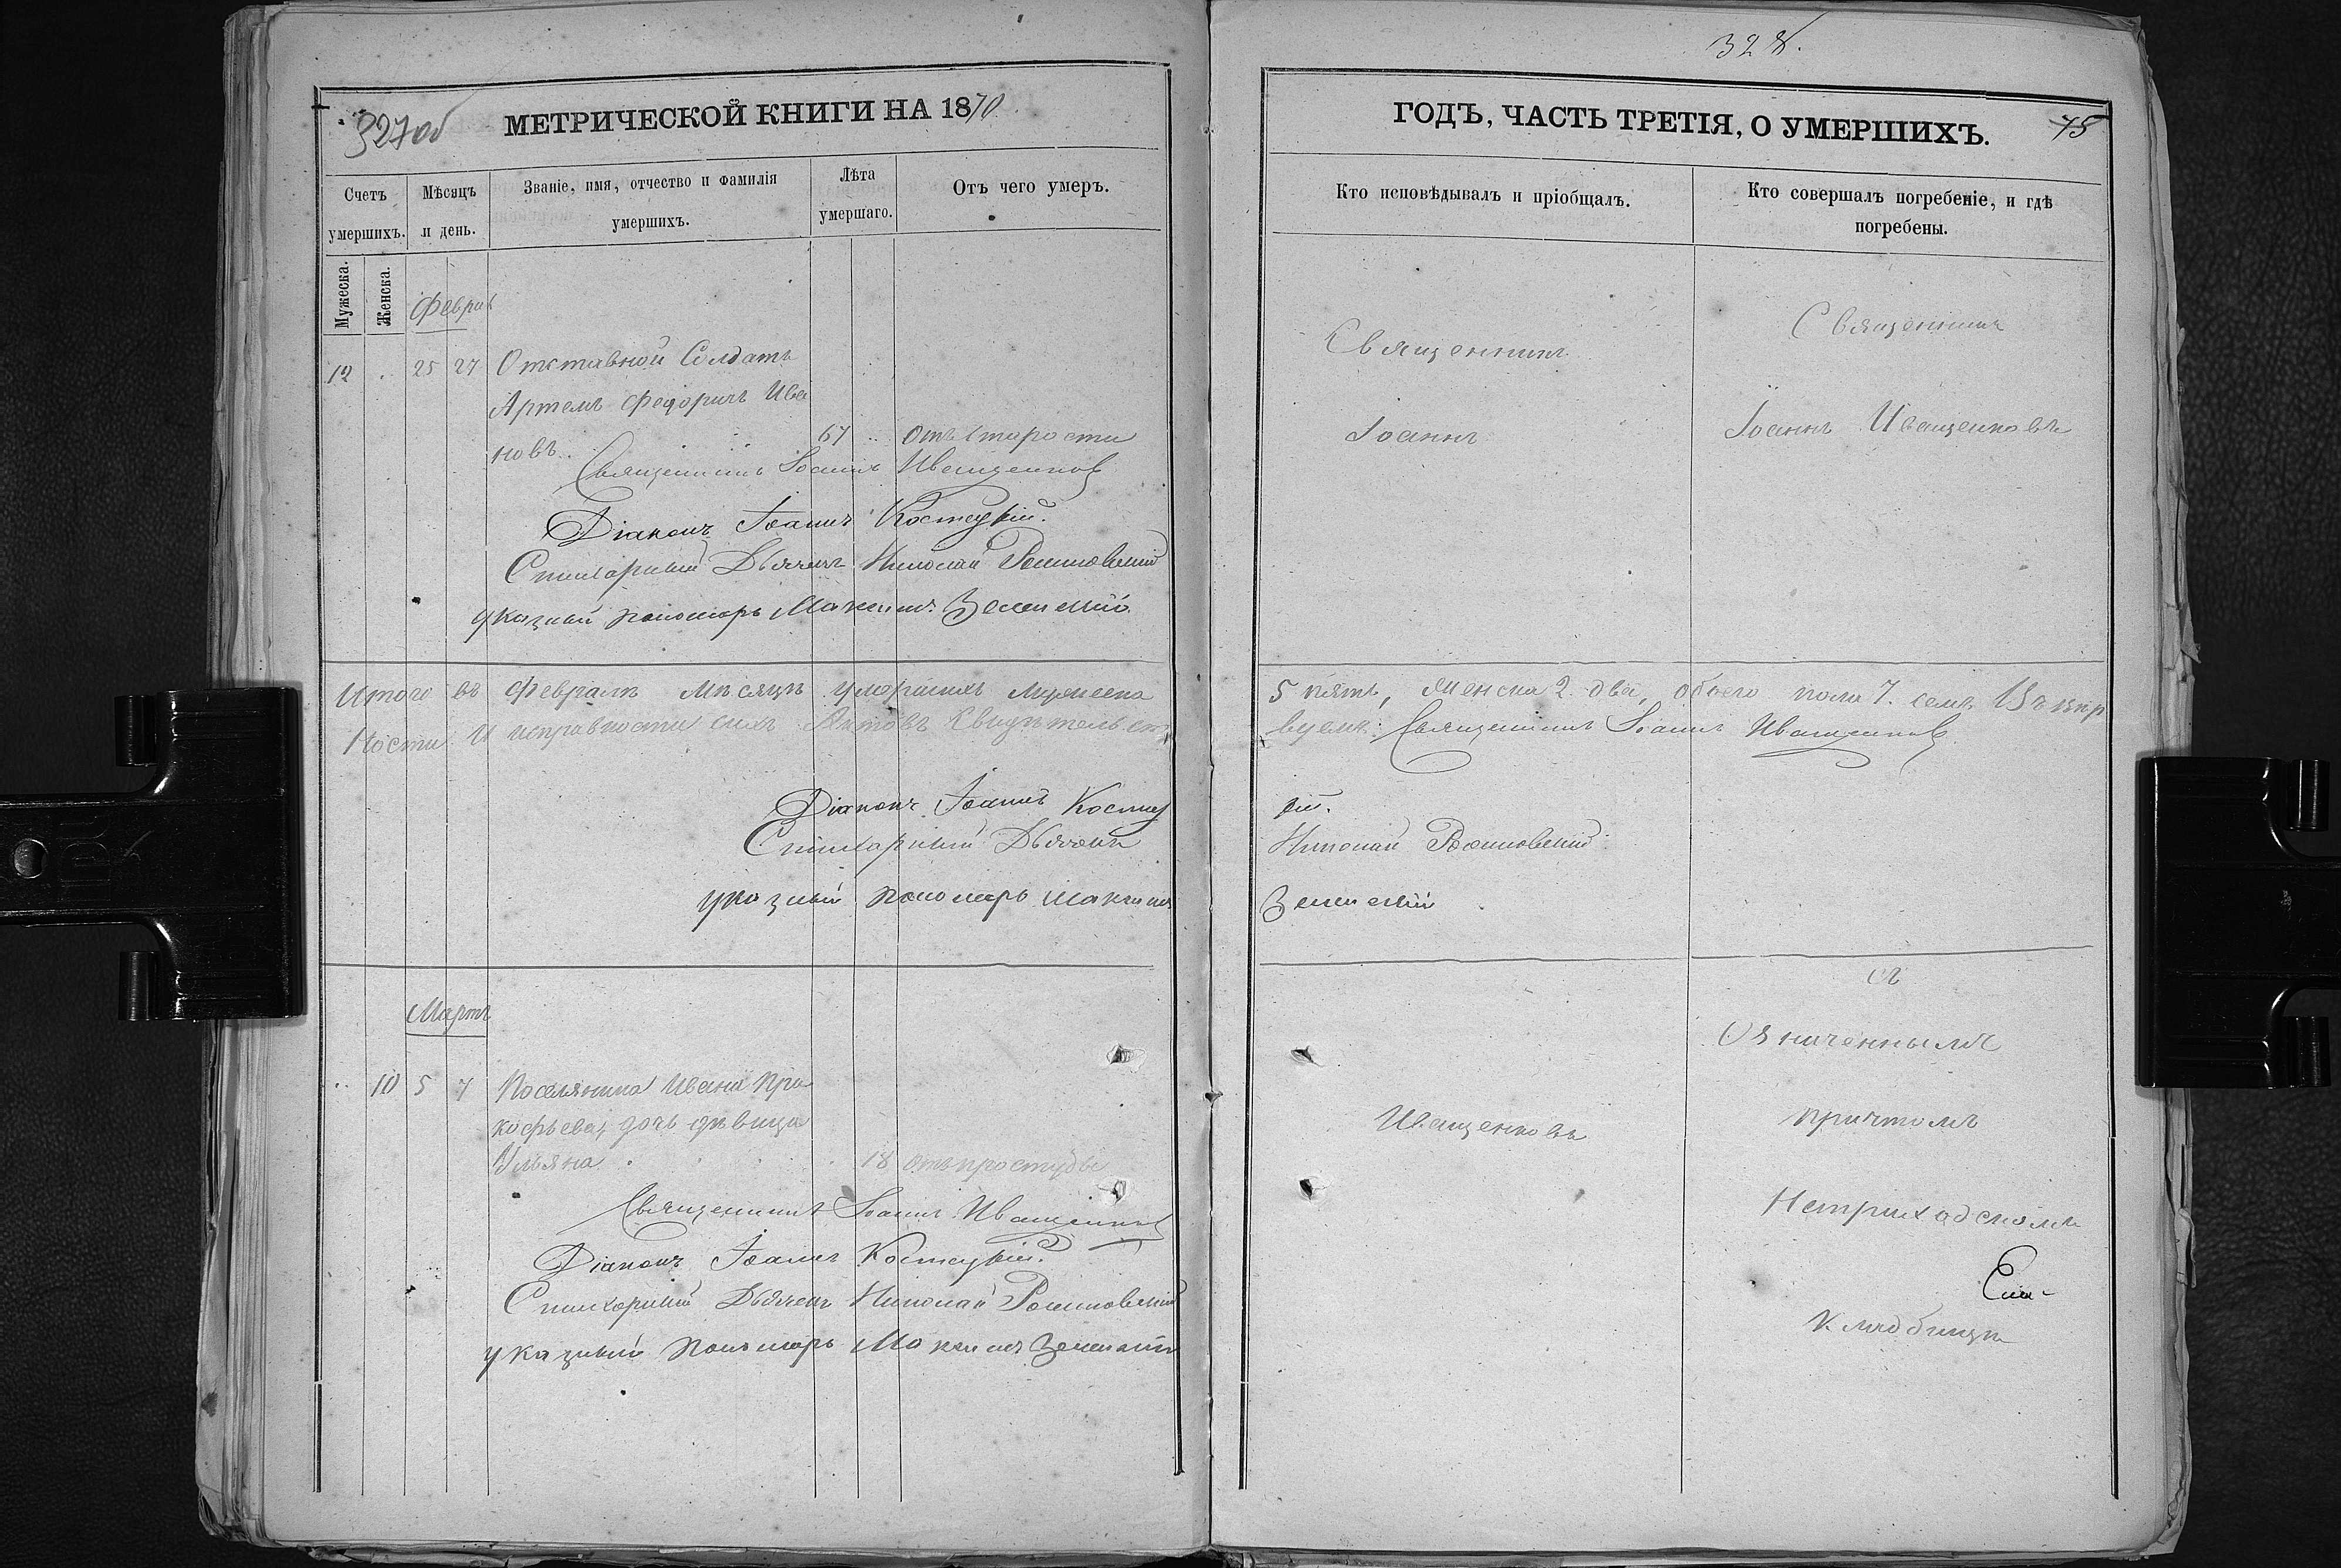 327об
МЕТРИЧЕСКОЙ КНИГИ НА 1870
Счетъ умершихъ.
Мѣсяцъ и день.
Званіе, имя, отчество и фамилія умершихъ.
Лѣта умершаго.
Отъ чего умеръ.
Мужеска.
Женска.
Феврал
12 25 27 Отставной Солдатъ
Артемъ Федоричъ Ива
новъ 67 отъ старости
Священникъ Іоаннъ Иващенков
Діаконъ Іоаннъ Костецкій.
Стихарный Дьячекъ Николай
указный пономарь Максимъ
Итого въ Февралѣ мѣсяцѣ умершихъ Мужеска
ности и исправности сихъ Актовъ Свидѣтельст
Діаконъ Іоаннъ Костец
Стихарный Дьячекъ
указный пономарь Максимъ
Мартъ
10 5 7 Поселянина Ивана Про
кофьева, дочь дѣвица
Ульяна 18 отъ простуды
Священникъ Іоаннъ Иващенков
Діаконъ Іоаннъ Костецкій.
Стихарный Дьячекъ Николай
указный пономарь Максимъ
328.
ГОДЪ, ЧАСТЬ ТРЕТІЯ, О УМЕРШИХЪ.
75
Кто исповѣдывалъ и пріобщалъ.
Кто совершалъ погребеніе, и гдѣ погребены.
Священникъ
Іоаннъ
Священникъ
Іоаннъ Иващенковъ
5 пять, Женска 2. два, обоего пола 7. семь Въ вѣр
вуемъ: Священникъ Іоаннъ Иващенков
кій.
Николай
Иващенковъ
съ
Означеннымъ
причтомъ
На приходскомъ
Кладбищѣ